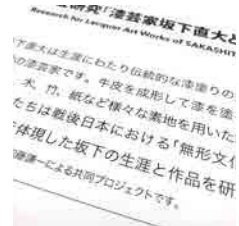 研究「漆芸家坂下直大と
Research for Lacquer Art Works of SAKASHIT
下直大は生涯にわたり伝統的な漆塗りの
の漆芸家です。牛皮を成形して漆を塗
木、竹、紙など様々な素地を用いた
たちは戦後日本における「無形文化
体現した坂下の生涯と作品を研
による共同プロジェクトです。